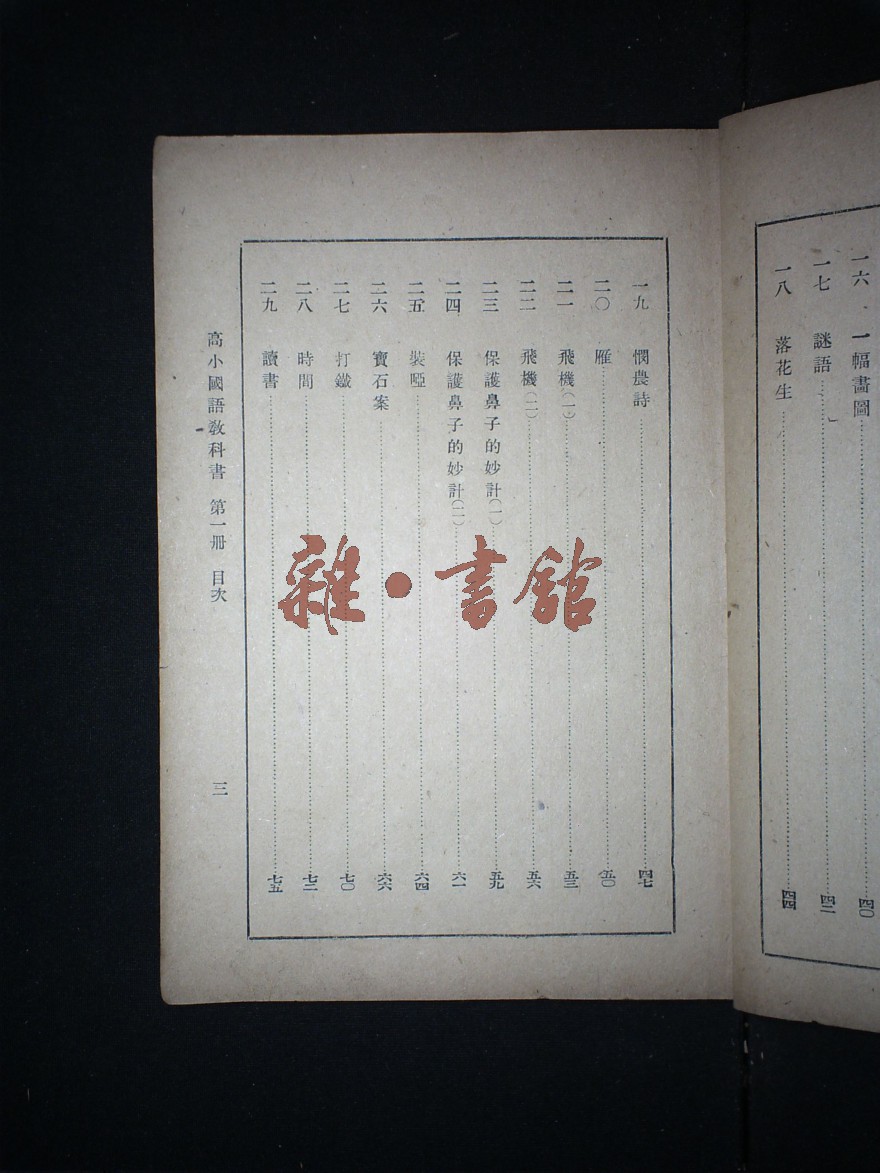 一六 一幅畫圖 四〇
一七 謎語 四二
一八 落花生 四四
一九 憫農詩 四七
二〇 雁 五〇
二一 飛機(一) 五三
二二 飛機(二) 五六
二三 保護鼻子的妙計(一) 五九
二四 保護鼻子的妙計(二) 六一
二五 裝啞 六四
二六 寶石案 六六
二七 打鐵 七〇
二八 時間 七二
二九 讀書 七五
高小國語教科書 第一册 目次 三
雜·書館